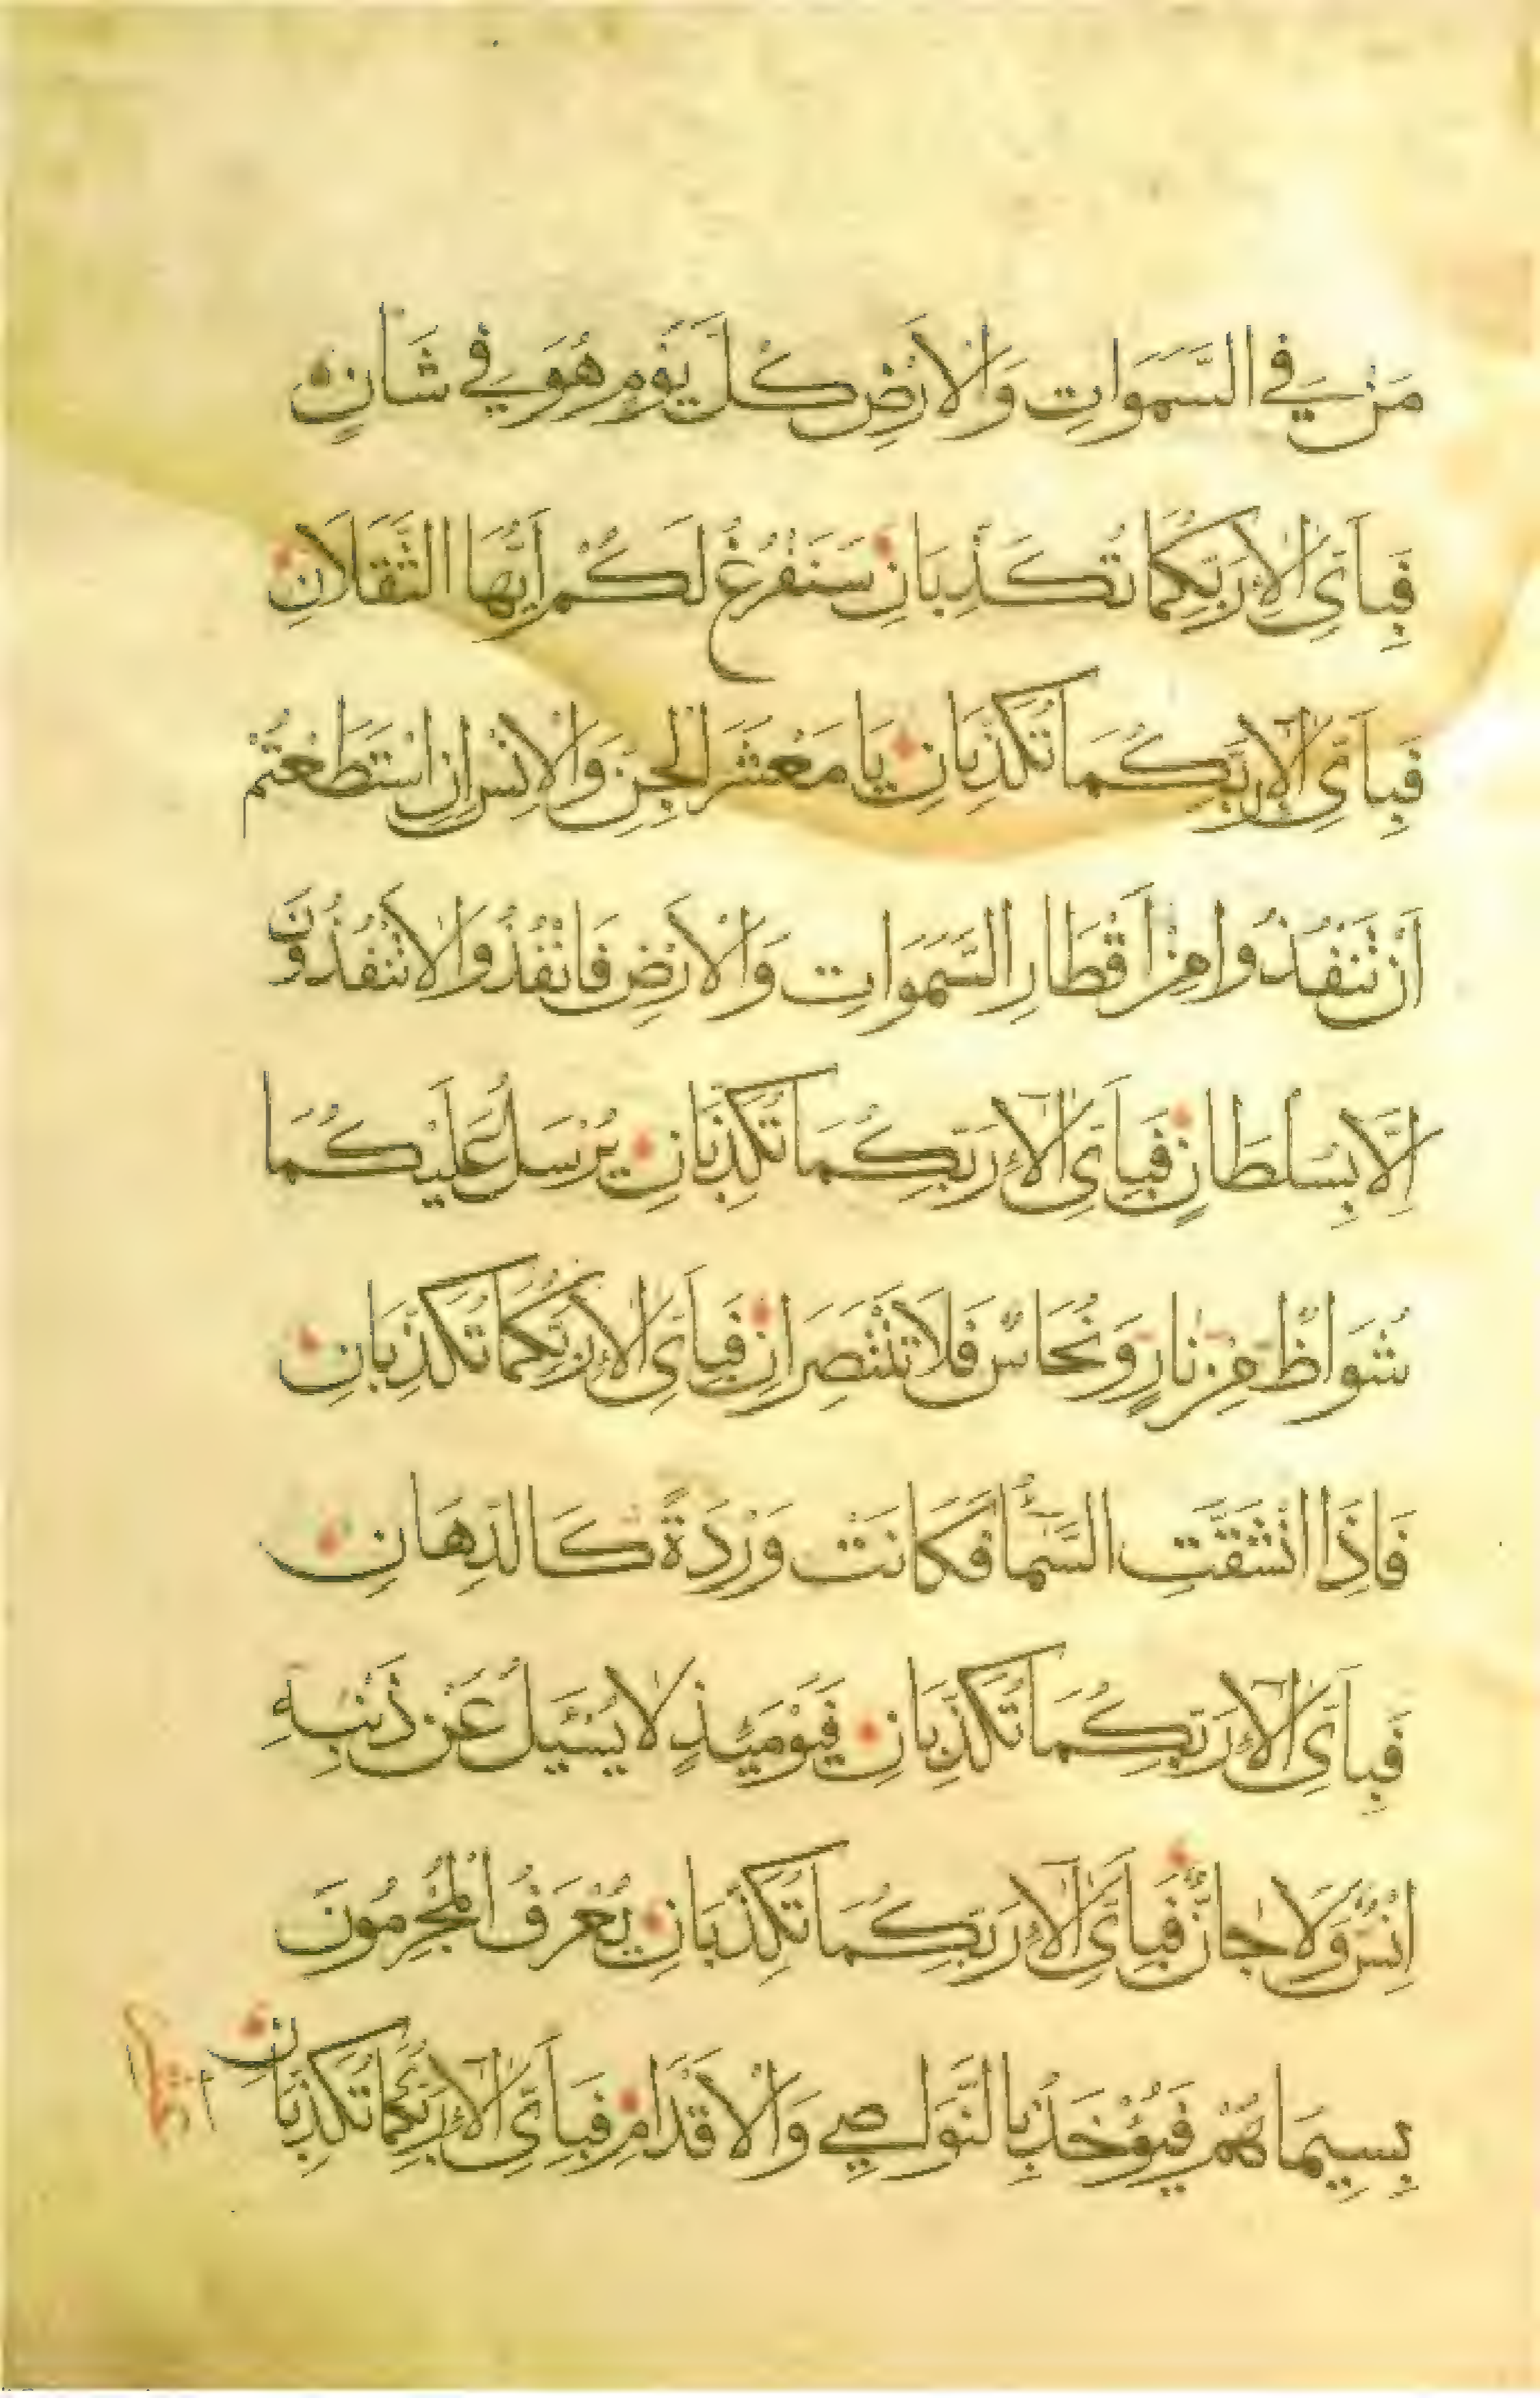 مَنْ فِي السَّمَوَاتِ وَالْاَرْضِ كُلَّ يَوْمٍ هُوَ فِي شَانٍ
فَبِاَىِّ اٰلَاءِ رَبِّكُمَا تُكَذِّبَانِ سَنَفْرُغُ لَكُمْ اَيُّهَا الثَّقَلَانِ
فَبِاَىِّ اٰلَاءِ رَبِّكُمَا تُكَذِّبَانِ يَا مَعْشَرَ الْجِنِّ وَالْاِنْسِ اِنِ اسْتَطَعْتُمْ
اَنْ تَنْفُذُوا مِنْ اَقْطَارِ السَّمَوَاتِ وَالْاَرْضِ فَانْفُذُوا لَا تَنْفُذُونَ
اِلَّا بِسُلْطَانٍ فَبِاَىِّ اٰلَاءِ رَبِّكُمَا تُكَذِّبَانِ يُرْسَلُ عَلَيْكُمَا
شُوَاظٌ مِنْ نَارٍ وَنُحَاسٌ فَلَا تَنْتَصِرَانِ فَبِاَىِّ اٰلَاءِ رَبِّكُمَا تُكَذِّبَانِ
فَاِذَا انْشَقَّتِ السَّمَآءُ فَكَانَتْ وَرْدَةً كَالدِّهَانِ
فَبِاَىِّ اٰلَاءِ رَبِّكُمَا تُكَذِّبَانِ فَيَوْمَئِذٍ لَا يُسْئَلُ عَنْ ذَنْبِهِ
اِنْسٌ وَلَا جَانٌّ فَبِاَىِّ اٰلَاءِ رَبِّكُمَا تُكَذِّبَانِ يُعْرَفُ الْمُجْرِمُونَ
بِسِيمَاهُمْ فَيُؤْخَذُ بِالنَّوَاصِي وَالْاَقْدَامِ فَبِاَىِّ اٰلَاءِ رَبِّكُمَا تُكَذِّبَانِ